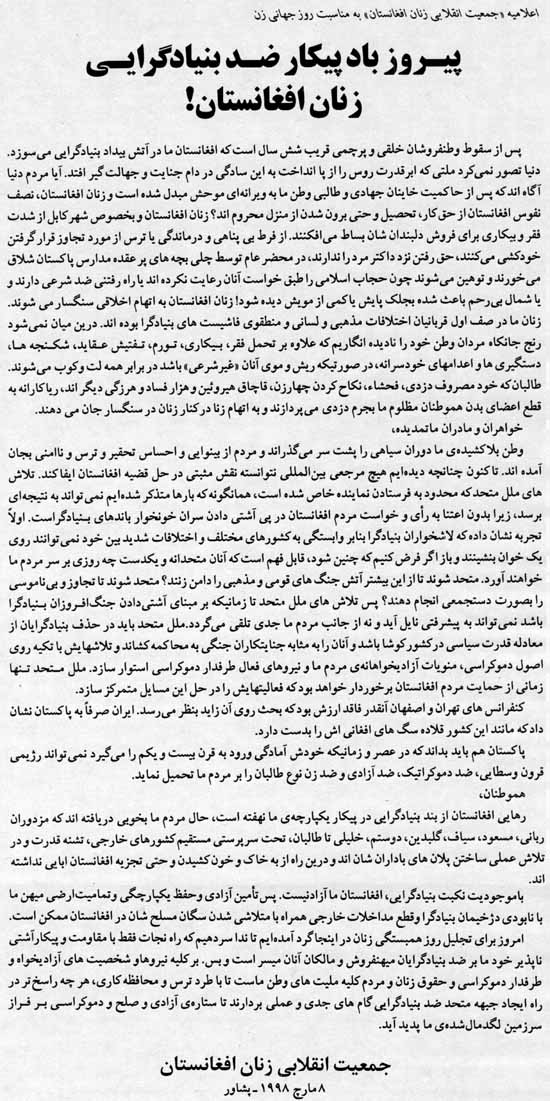 اعلامیه «جمعیت انقلابی زنان افغانستان» به مناسبت روز جهانی زن
پیروز باد پیکار ضد بنیادگرایی
زنان افغانستان!
پس از سقوط وطنفروشان خلقی و پرچمی قریب شش سال است که افغانستان ما در آتش بیداد بنیادگرایی می‌سوزد.
دنیا تصور نمی‌کرد ملتی که ابرقدرت روس را از پا انداخت به این سادگی در دام جنایت و جهالت گیر افتد. آیا مردم دنیا
آگاه اند که پس از حاکمیت خاینان جهادی و طالبی وطن ما به ویرانه‌ای موحش مبدل شده است و زنان افغانستان، نصف
نفوس افغانستان از حق کار، تحصیل و حتی برون شدن از منزل محروم اند؟ زنان افغانستان و بخصوص شهر کابل از شدت
فقر و بیکاری برای فروش دلبندان شان بساط می‌افکنند. از فرط بی پناهی و درماندگی یا ترس از مورد تجاوز قرار گرفتن
خودکشی می‌کنند، حق رفتن نزد داکتر مرد را ندارند، در محضر عام توسط چلی بچه های پر عقده مدارس پاکستان شلاق
می‌خورند و توهین می‌شوند چون حجاب اسلامی را طبق خواست آنان رعایت نکرده اند یا راه رفتنی ضد شرعی دارند و
یا شمال بی‌رحم باعث شده بجلک پایش یا کمی از مویش دیده شود! زنان افغانستان به اتهام اخلاقی سنگسار می شوند.
زنان ما در صف اول قربانیان اختلافات مذهبی و لسانی و منطقوی فاشیست های بنیادگرا بوده اند. درین میان نمی‌شود
رنج جانکاه مردان وطن خود را نادیده انگاریم که علاوه بر تحمل فقر، بیکاری، تورم، تفتیش عقاید، شکنجه ها،
دستگیری ها و اعدامهای خودسرانه، در صورتیکه ریش و موی آنان «غیرشرعی» باشد در برابر همه لت وکوب می‌شوند.
طالبان که خود مصروف دزدی، فحشاء، نکاح کردن چهارزن، قاچاق هیروئین و هزار فساد و هرزگی دیگر اند، ریاکارانه به
قطع اعضای بدن هموطنان مظلوم ما بجرم دزدی می‌پردازند و به اتهام زنا در کنار زنان در سنگسار جان می دهند.
خواهران و مادران ماتمدیده،
وطن بلاکشیده‌ی ما دوران سیاهی را پشت سر می‌گذراند و مردم از بینوایی و احساس تحقیر و ترس و ناامنی بجان
آمده اند. تاکنون چنانچه دیده‌ایم هیچ مرجعی بین‌المللی نتوانسته نقش مثبتی در حل قضیه افغانستان ایفا کند. تلاش
های ملل متحد که محدود به فرستادن نماینده خاص شده است، همانگونه که بارها متذکر شده‌ایم نمی تواند به نتیجه‌ای
برسد، زیرا بدون اعتنا به رأی و خواست مردم افغانستان در پی آشتی دادن سران خونخوار باندهای بنیادگراست. اولاً
تجربه نشان داده که لاشخواران بنیادگرا بنابر وابستگی به کشورهای مختلف و اختلافات شدید بین خود نمی‌توانند روی
یک خوان بنشینند و باز اگر فرض کنیم که چنین شود، قابل فهم است که آنان متحدانه و یکدست چه روزی بر سر مردم ما
خواهند آورد. متحد شوند تا از این بیشتر آتش جنگ های قومی و مذهبی را دامن زنند؟ متحد شوند تا تجاوز و بی‌ناموسی
را بصورت دستجمعی انجام دهند؟ پس تلاش های ملل متحد تا زمانیکه بر مبنای آشتی‌دادن جنگ‌افروزان بنیادگرا
باشد نمی‌تواند به پیشرفتی نایل آید و نه از جانب مردم ما جدی تلقی می‌گردد. ملل متحد باید در حذف بنیادگرایان از
معادله قدرت سیاسی در کشور کوشا باشد و آنان را به مثابه جنایتکاران جنگی به محاکمه کشاند و تلاشهایش با تکیه روی
اصول دموکراسی، منویات آزادیخواهانه‌ی مردم ما و نیروهای فعال طرفدار دموکراسی استوار سازد. ملل متحد تنها
زمانی از حمایت مردم افغانستان برخوردار خواهد بود که فعالیتهایش را در حل این مسایل متمرکز سازد.
کنفرانس های تهران و اصفهان آنقدر فاقد ارزش بود که بحث روی آن زاید بنظر می‌رسد. ایران صرفاً به پاکستان نشان
داد که مانند این کشور قلاده سگ های افغانی اش را بدست دارد.
پاکستان هم باید بداند که در عصر و زمانیکه خودش آمادگی ورود به قرن بیست و یکم را می‌گیرد نمی‌تواند رژیمی
قرون وسطایی، ضد دموکراتیک، ضد آزادی و ضد زن نوع طالبان را بر مردم ما تحمیل نماید.
هموطنان،
رهایی افغانستان از بند بنیادگرایی در پیکار یکپارچه‌ی ما نهفته است، حال مردم ما بخوبی دریافته اند که مزدوران
ربانی، مسعود، سیاف، گلبدین، دوستم، خلیلی تا طالبان، تحت سرپرستی مستقیم کشورهای خارجی، تشنه قدرت و در
تلاش عملی ساختن پلان های باداران شان اند و درین راه از به خاک و خون کشیدن و حتی تجزیه افغانستان ابایی نداشته
اند.
با موجودیت نکبت بنیادگرایی، افغانستان ما آزاد نیست. پس تأمین آزادی و حفظ یکپارچگی و تمامیت ارضی میهن ما
با نابودی دژخیمان بنیادگرا و قطع مداخلات خارجی همراه با متلاشی شدن سگان مسلح شان در افغانستان ممکن است.
امروز برای تجلیل روز همبستگی زنان در اینجا گرد آمده‌ایم تا ندا سردهیم که راه نجات فقط با مقاومت و پیکار آشتی
ناپذیر خود ما بر ضد بنیادگرایان میهنفروش و مالکان آنان میسر است و بس. بر کلیه نیروها و شخصیت های آزادیخواه و
طرفدار دموکراسی و حقوق زنان و مردم کلیه ملیت های وطن ماست تا با طرد ترس و محافظه کاری، هر چه راسخ‌تر در
راه ایجاد جبهه متحد ضد بنیادگرایی گام های جدی و عملی بردارند تا ستاره‌ی آزادی و صلح و دموکراسی بر فراز
سرزمین لگدمال‌شده‌ی ما پدید آید.
جمعیت انقلابی زنان افغانستان
۸ مارچ ۱۹۹۸ - پشاور